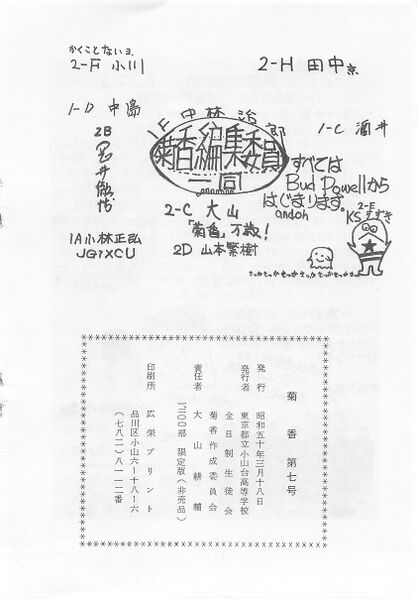 かくことないヨ.
2-F 小川
2-H 田中
1-D 中島
1F 中林治郎
1-C 酒井
菊香編集委員
一同
2B
すべては
Bud Powellから
はじまります。
andoh
2-C 大山
「菊香」万歳!
2D 山本繁樹
2-E
KSすずき
1A 小林正弘
JG1XCU
菊香 第七号
発行 昭和五十年三月十八日
発行者 東京都立小山台高等学校
全日制生徒会
菊香作成委員会
責任者 大山耕輔
1,700部 限定版(非売品)
印刷所 広栄プリント
品川区小山六ー十八ー六
(七八二)八一一二番